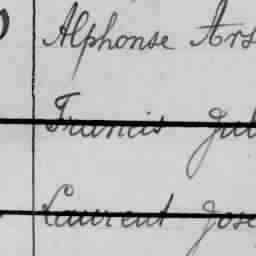 Alphonse Ars
Francis Jul
Laurent Jose